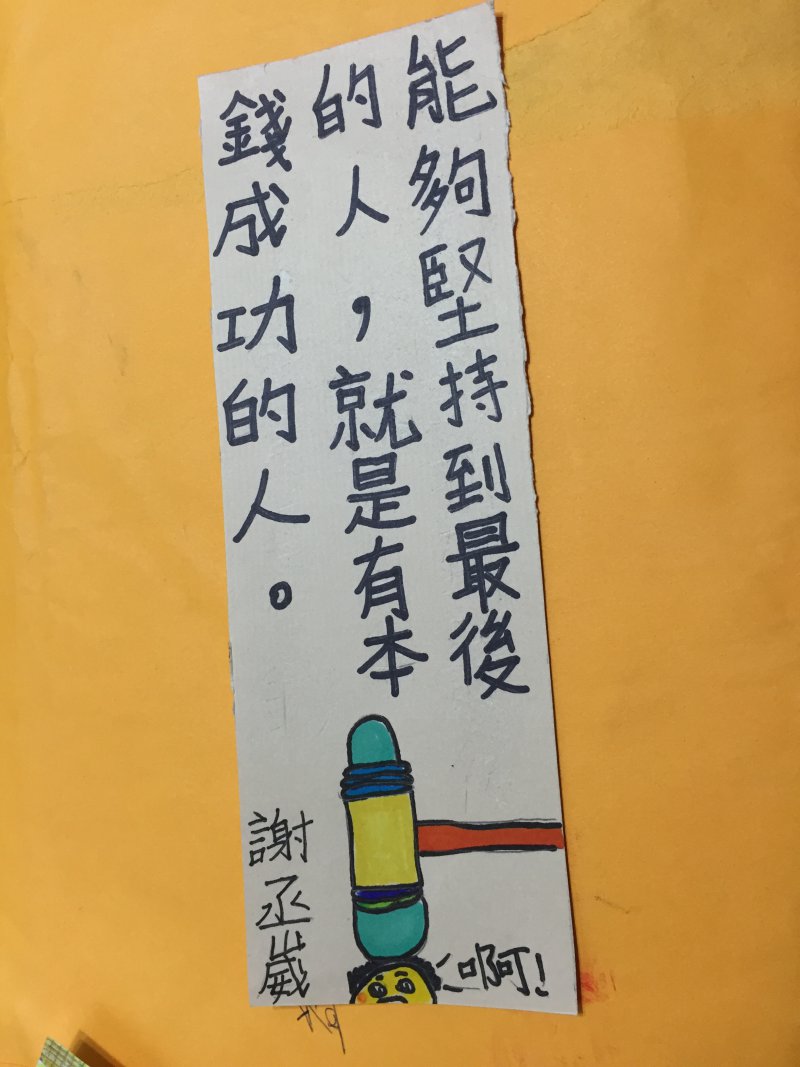 能夠堅持到最後
的人，就是有本
錢成功的人。
謝丞崴
啊!